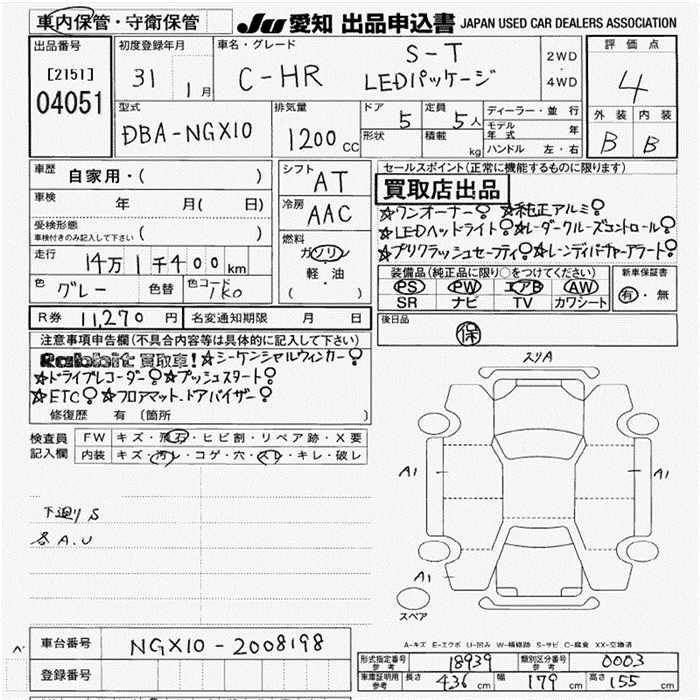 車内保管・守衛保管 JU 愛知 出品申込書 JAPAN USED CAR DEALERS ASSOCIATION
出品番号 初度登録年月 車名・グレード 評価点
[2151] 31 1月 C-HR S-T 2WD 4
04051 LEDパッケージ 4WD
型式 排気量 ドア 5 定員 5人 ディーラー・並行 外装 内装
DBA-NGX10 1200cc 形状 積載 kg モデル年式 年 B B
ハンドル 左・右
車歴 自家用・( ) シフト AT セールスポイント(正常に機能するものに限ります)
買取店出品
車検 年 月( 日) 冷房 AAC ☆ワンオーナー♀ ☆純正アルミ♀
受検形態 ☆LEDヘッドライト♀☆レーダークルーズコントロール♀
車検付きのみ記入して下さい ( ) 燃料 ☆プリクラッシュセーフティ♀☆レーンディパーチャーアラート♀
走行 14万1千400km ガソリン 装備品(純正品に限り○をつけてください) 新車保証書
軽・油 PS PW エアB AW 有・無
色 グレー 色替 色コード 1K0 ( ) SR ナビ TV カワシート
R券 11,270円 名変通知期限 月 日 後日品
保
注意事項申告欄(不具合内容等は具体的に記入して下さい)
Rabbit 買取車!☆シーケンシャルウィンカー♀ スリA
☆ドライブレコーダー♀☆プッシュスタート♀
☆ETC♀☆フロアマット、ドアバイザー♀
修復歴 有〔箇所 〕
検査員 FW キズ・飛石・ヒビ割・リペア跡・X要
記入欄 内装 キズ・汚レ・コゲ・穴・スレ・キレ・破レ
A1 A1
下廻りS
各A.U
A1
スペア
A-キズ E-エクボ U-凹み W-補修跡 S-サビ C-腐食 XX-交換済
車台番号 NGX10-2008198
登録番号
形式指定番号 参考 18939 類別区分番号 参考 0003
車庫証明用 参考 長さ 436cm 幅 179cm 高さ 155cm